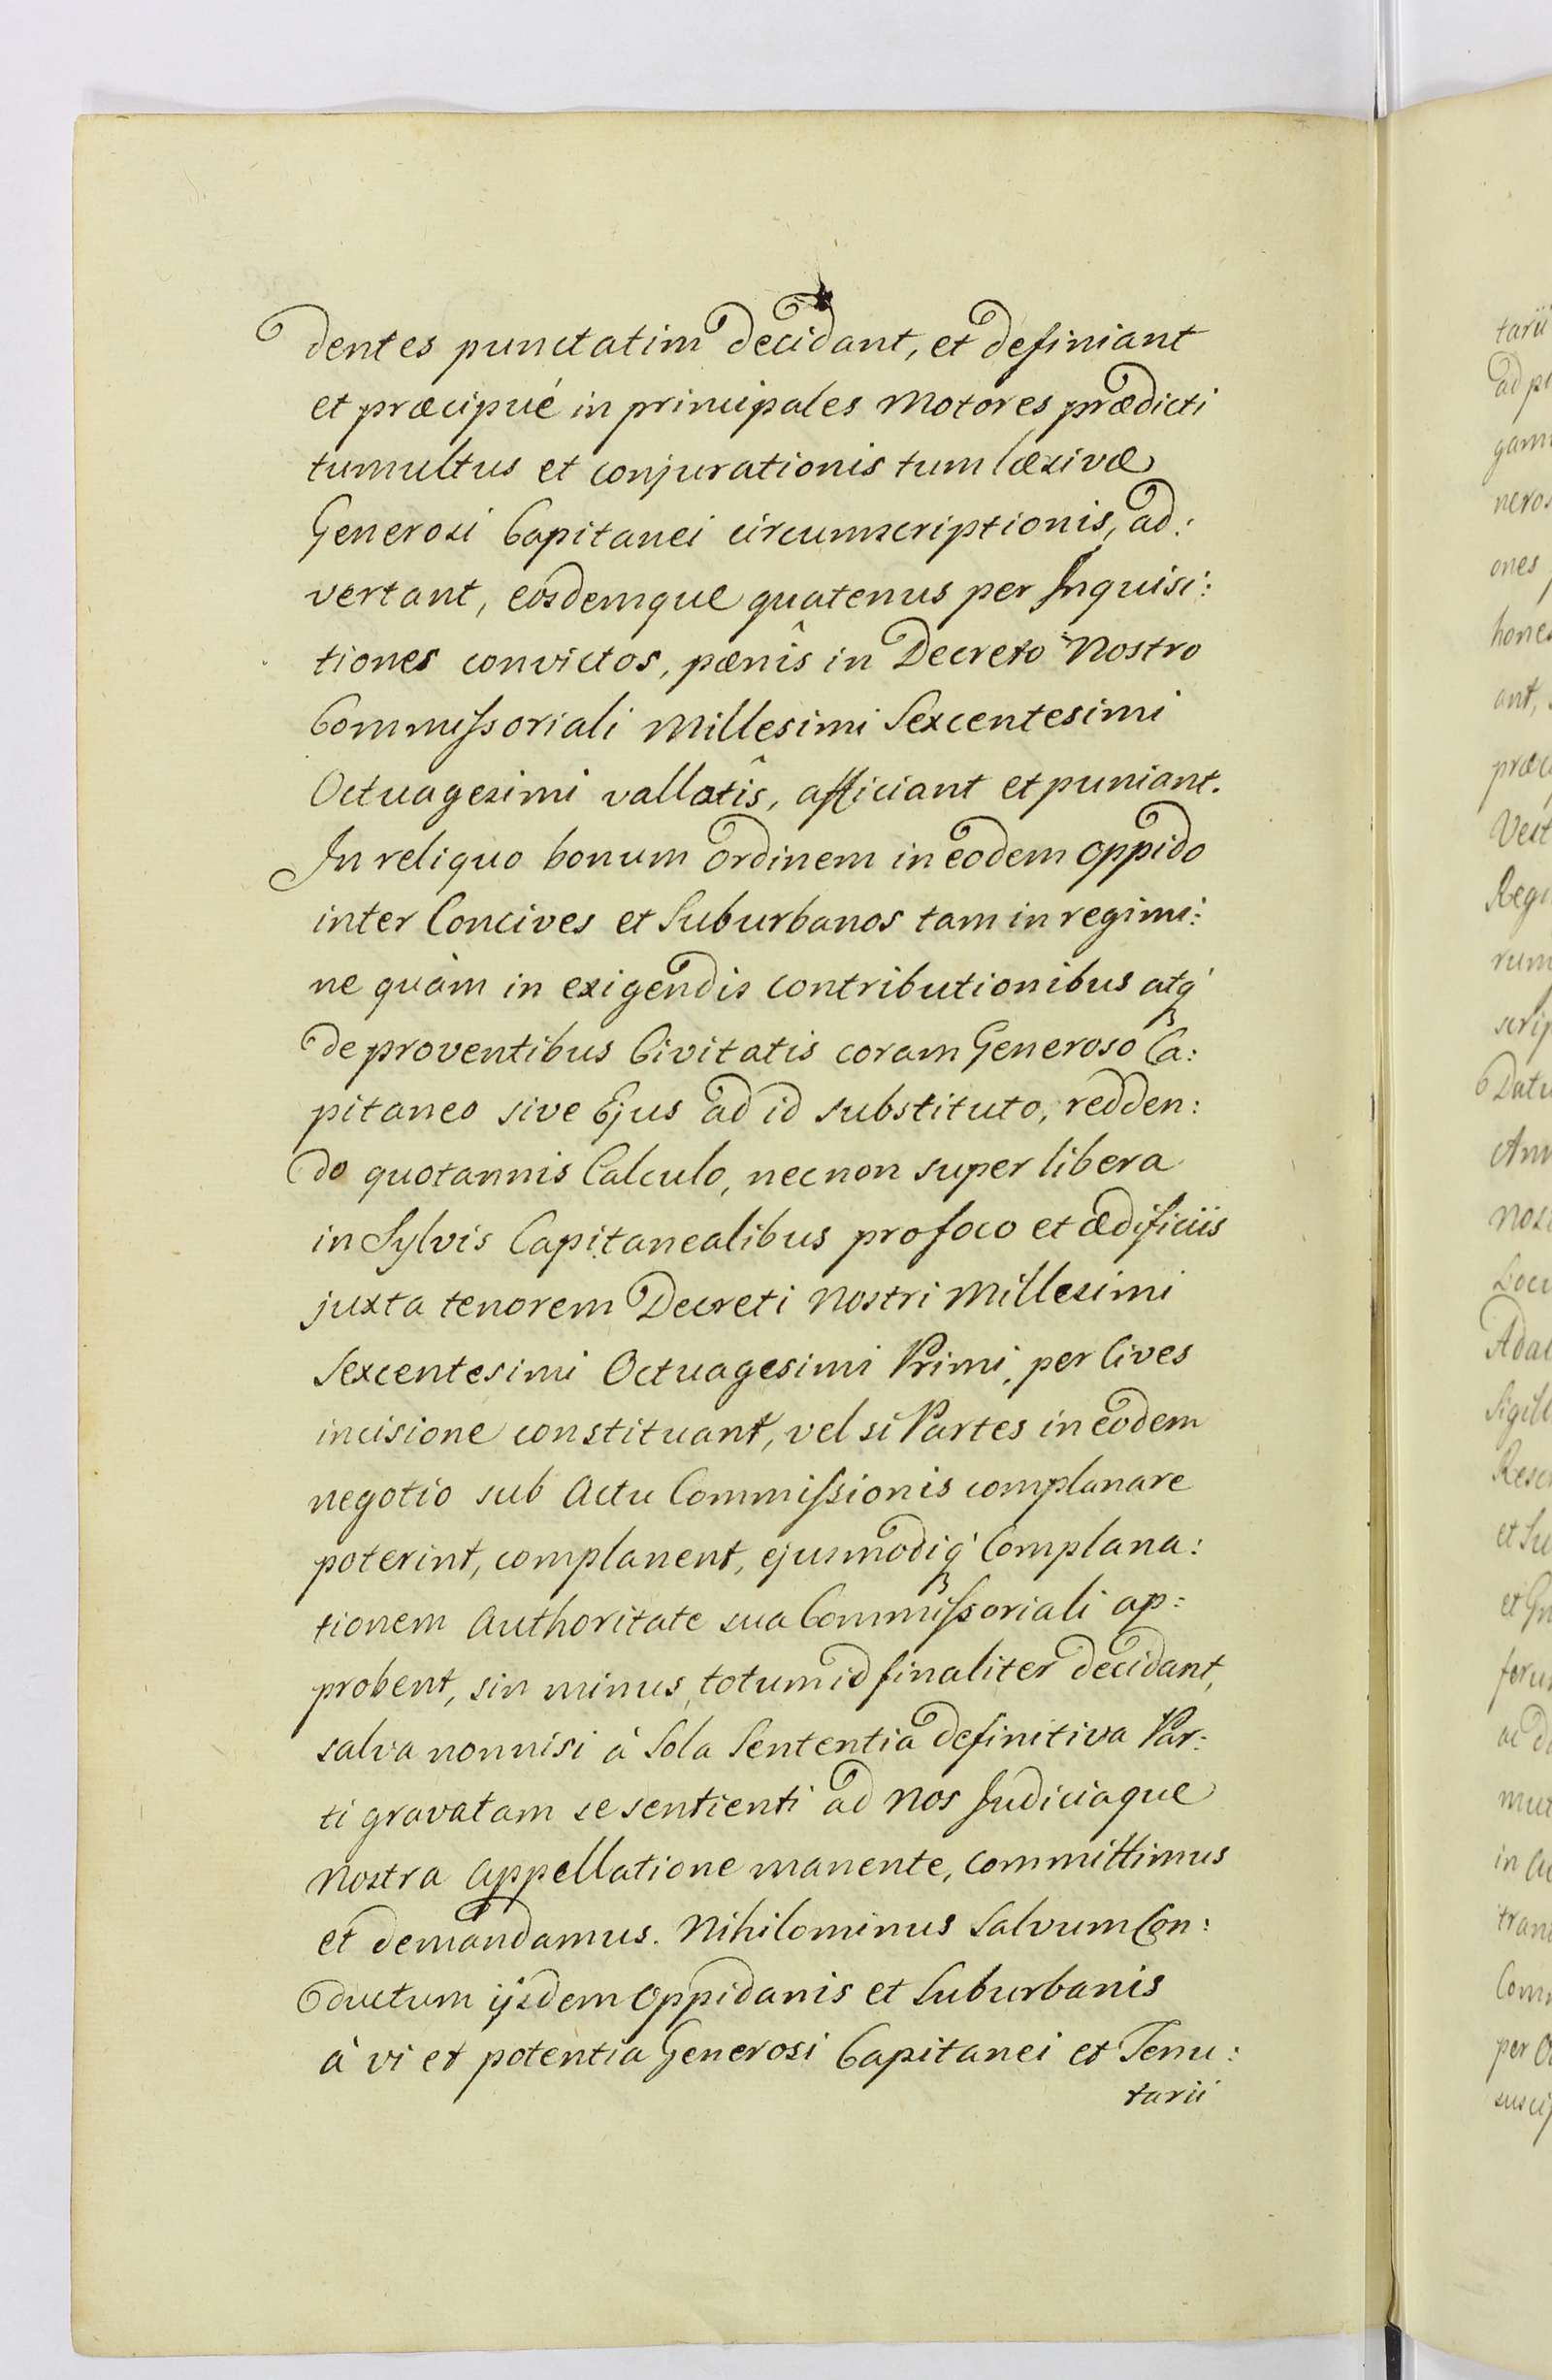 dentes punctatim decidant, et definiant
et præcipué in principales Motores prædicti
tumultus et conjurationis tum læsivæ
Generosi Capitanei circumscriptionis, ad:
vertant, eosdemque quatenus per Inquisi:
tiones convictos, pænîs in Decreto Nostro
Commissoriali Millesimi Sexcentesimi
Octuagesimi vallatîs, afficiant et puniant.
In reliquo bonum ordinem in eodem oppido
inter Concives et Suburbanos tam in regimi:
ne quàm in exigendis contributionibus atq́
de proventibus Civitatis coram Generoso Ca:
pitaneo sive Ejus ad id substituto, redden:
do quotannis Calculo, necnon super libera
in Sylvis Capitanealibus pro foco et ædificiis
juxta tenorem Decreti Nostri Millesimi
Sexcentesimi Octuagesimi Primi, per Cives
incisione constituant, vel si Partes in eodem
negotio sub Actu Commissionis complanare
poterint, complanent, ejusmodiq́ Complana:
tionem Authoritate sua Commissoriali ap:
probent, sin minus, totum id finaliter decidant,
salva nonnisi à Sola Sententia definitiva Par:
ti gravatam se sentienti ad Nos Judiciaque
Nostra Appellatione manente, committimus
et demandamus. Nihilominus Salvum Con:
ductum ijsdem Oppidanis et Suburbanis
à vi et potentia Generosi Capitanei et Tenu:
tarii
tarii
gam
nero
ones
hone
ant,
præc
Vest
Reg
rum
scrip
Datu
Ann
Nos
Locu
Sigill
et Su
ac d
mut
in Ac
Com
per O
susci